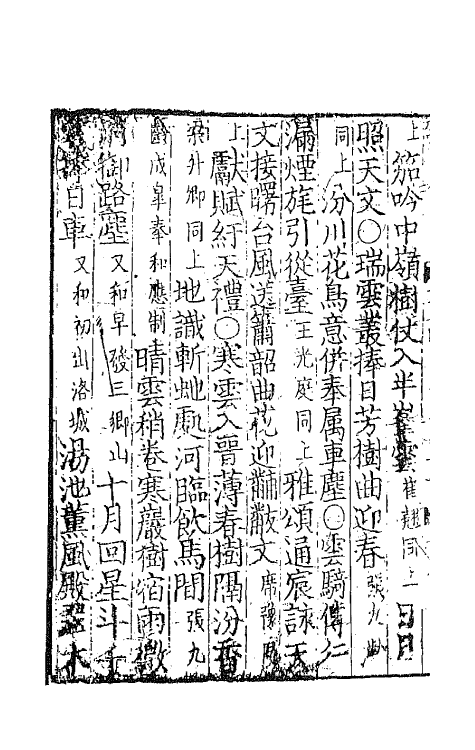 上笳吟中嶺樹仗入半峯雲崔翹同上日月
照天文〇瑞雲叢捧日芳樹曲迎春張九齡
同上汾川花鳥意供奉属車塵〇雲騎傳仁
漏煙旄引從臺王光庭同上雅頌通宸詠天
文接曙台風送簫韶曲花迎黼黻文席豫同
上獻賦紆天禮〇寒雲入晉薄春樹隔汾香
梁升卿同上地識斬虵處河臨飲馬間張九
齡成皐奉和應制晴雲稍卷寒巖樹宿雨
御路塵又和早發三鄉山十月回星斗千
日車又和初出洛城湯池薰風殿